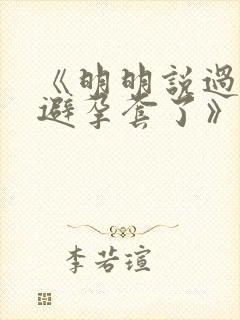 《明明説過
避孕套了》
李若瑄